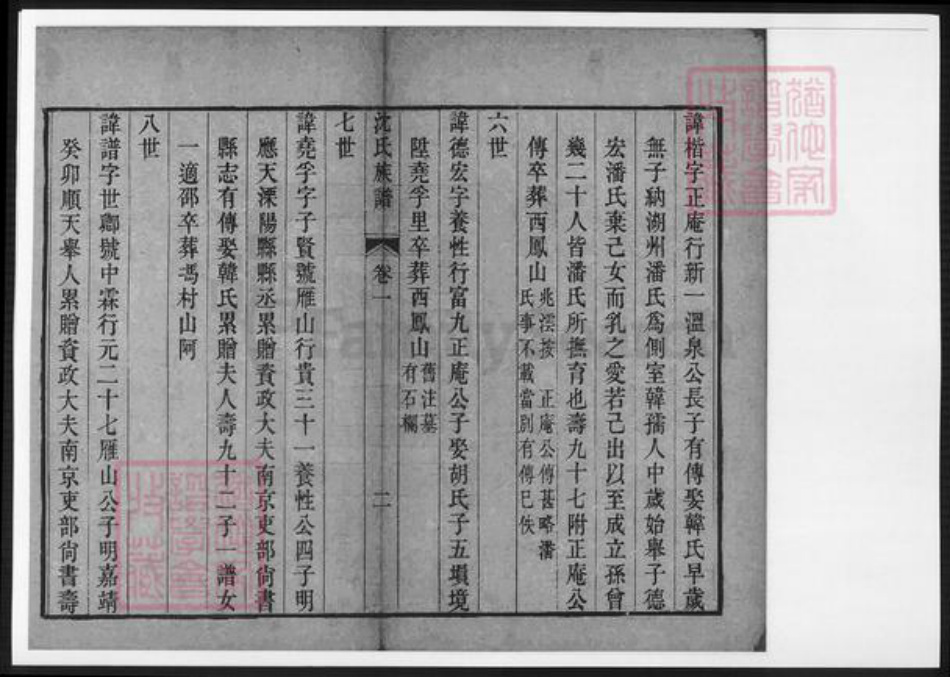 諱楷字正庵行新一溫泉公長子有傳娶韓氏早歲
無子納湖州潘氏爲側室韓孺人中歲始舉子德
宏潘氏棄己女而乳之愛若己出以至成立孫曾
幾二十人皆潘氏所撫育也壽九十七附正庵公
傳卒葬西鳳山
兆澐按 正庵公傳甚略潘
氏事不載當別有傳已佚
六世
諱德宏字養性行富九正庵公子娶胡氏子五塤境
陞堯孚里卒葬西鳳山
舊注墓
有石欄
沈氏族譜
卷一
二
七世
諱堯孚字子賢號雁山行貴三十一養性公四子明
應天溧陽縣縣丞累贈資政大夫南京吏部尙書
縣志有傳娶韓氏累贈夫人壽九十二子一譜女
一適邵卒葬馮村山阿
八世
諱譜字世卿號中霖行元二十七雁山公子明嘉靖
癸卯順天舉人累贈資政大夫南京吏部尙書壽